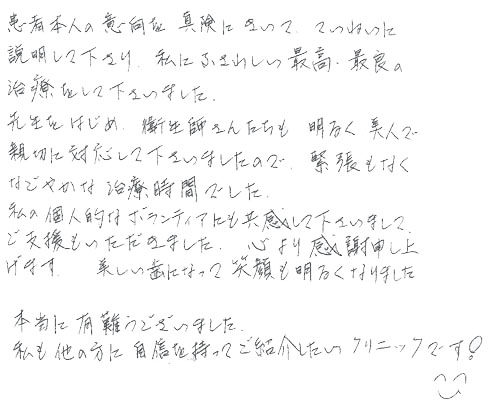 患者本人の意向を真険にきいて、ていねいに
説明して下さり、私にふさわしい最高・最良の
治療をして下さいました。
先生をはじめ、衛生師さんたちも明るく美人で
親切に対応して下さいましたので、緊張もなく
なごやかな治療時間でした。
私の個人的なボランティアにも共感して下さいまして、
ご支援もいただきました。心より感謝申し上
げます。美しい歯になって笑顔も明るくなりました
本当に有難うございました。
私も他の方に自信を持ってご紹介したいクリニックです!